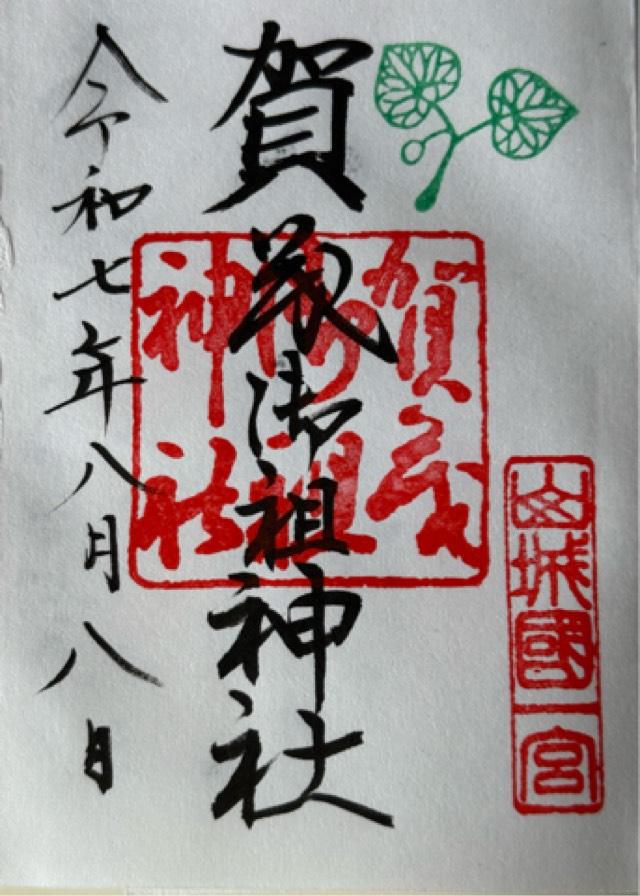 山城國一宮
賀茂御祖神社
賀茂
御祖
神社
令和七年八月八日